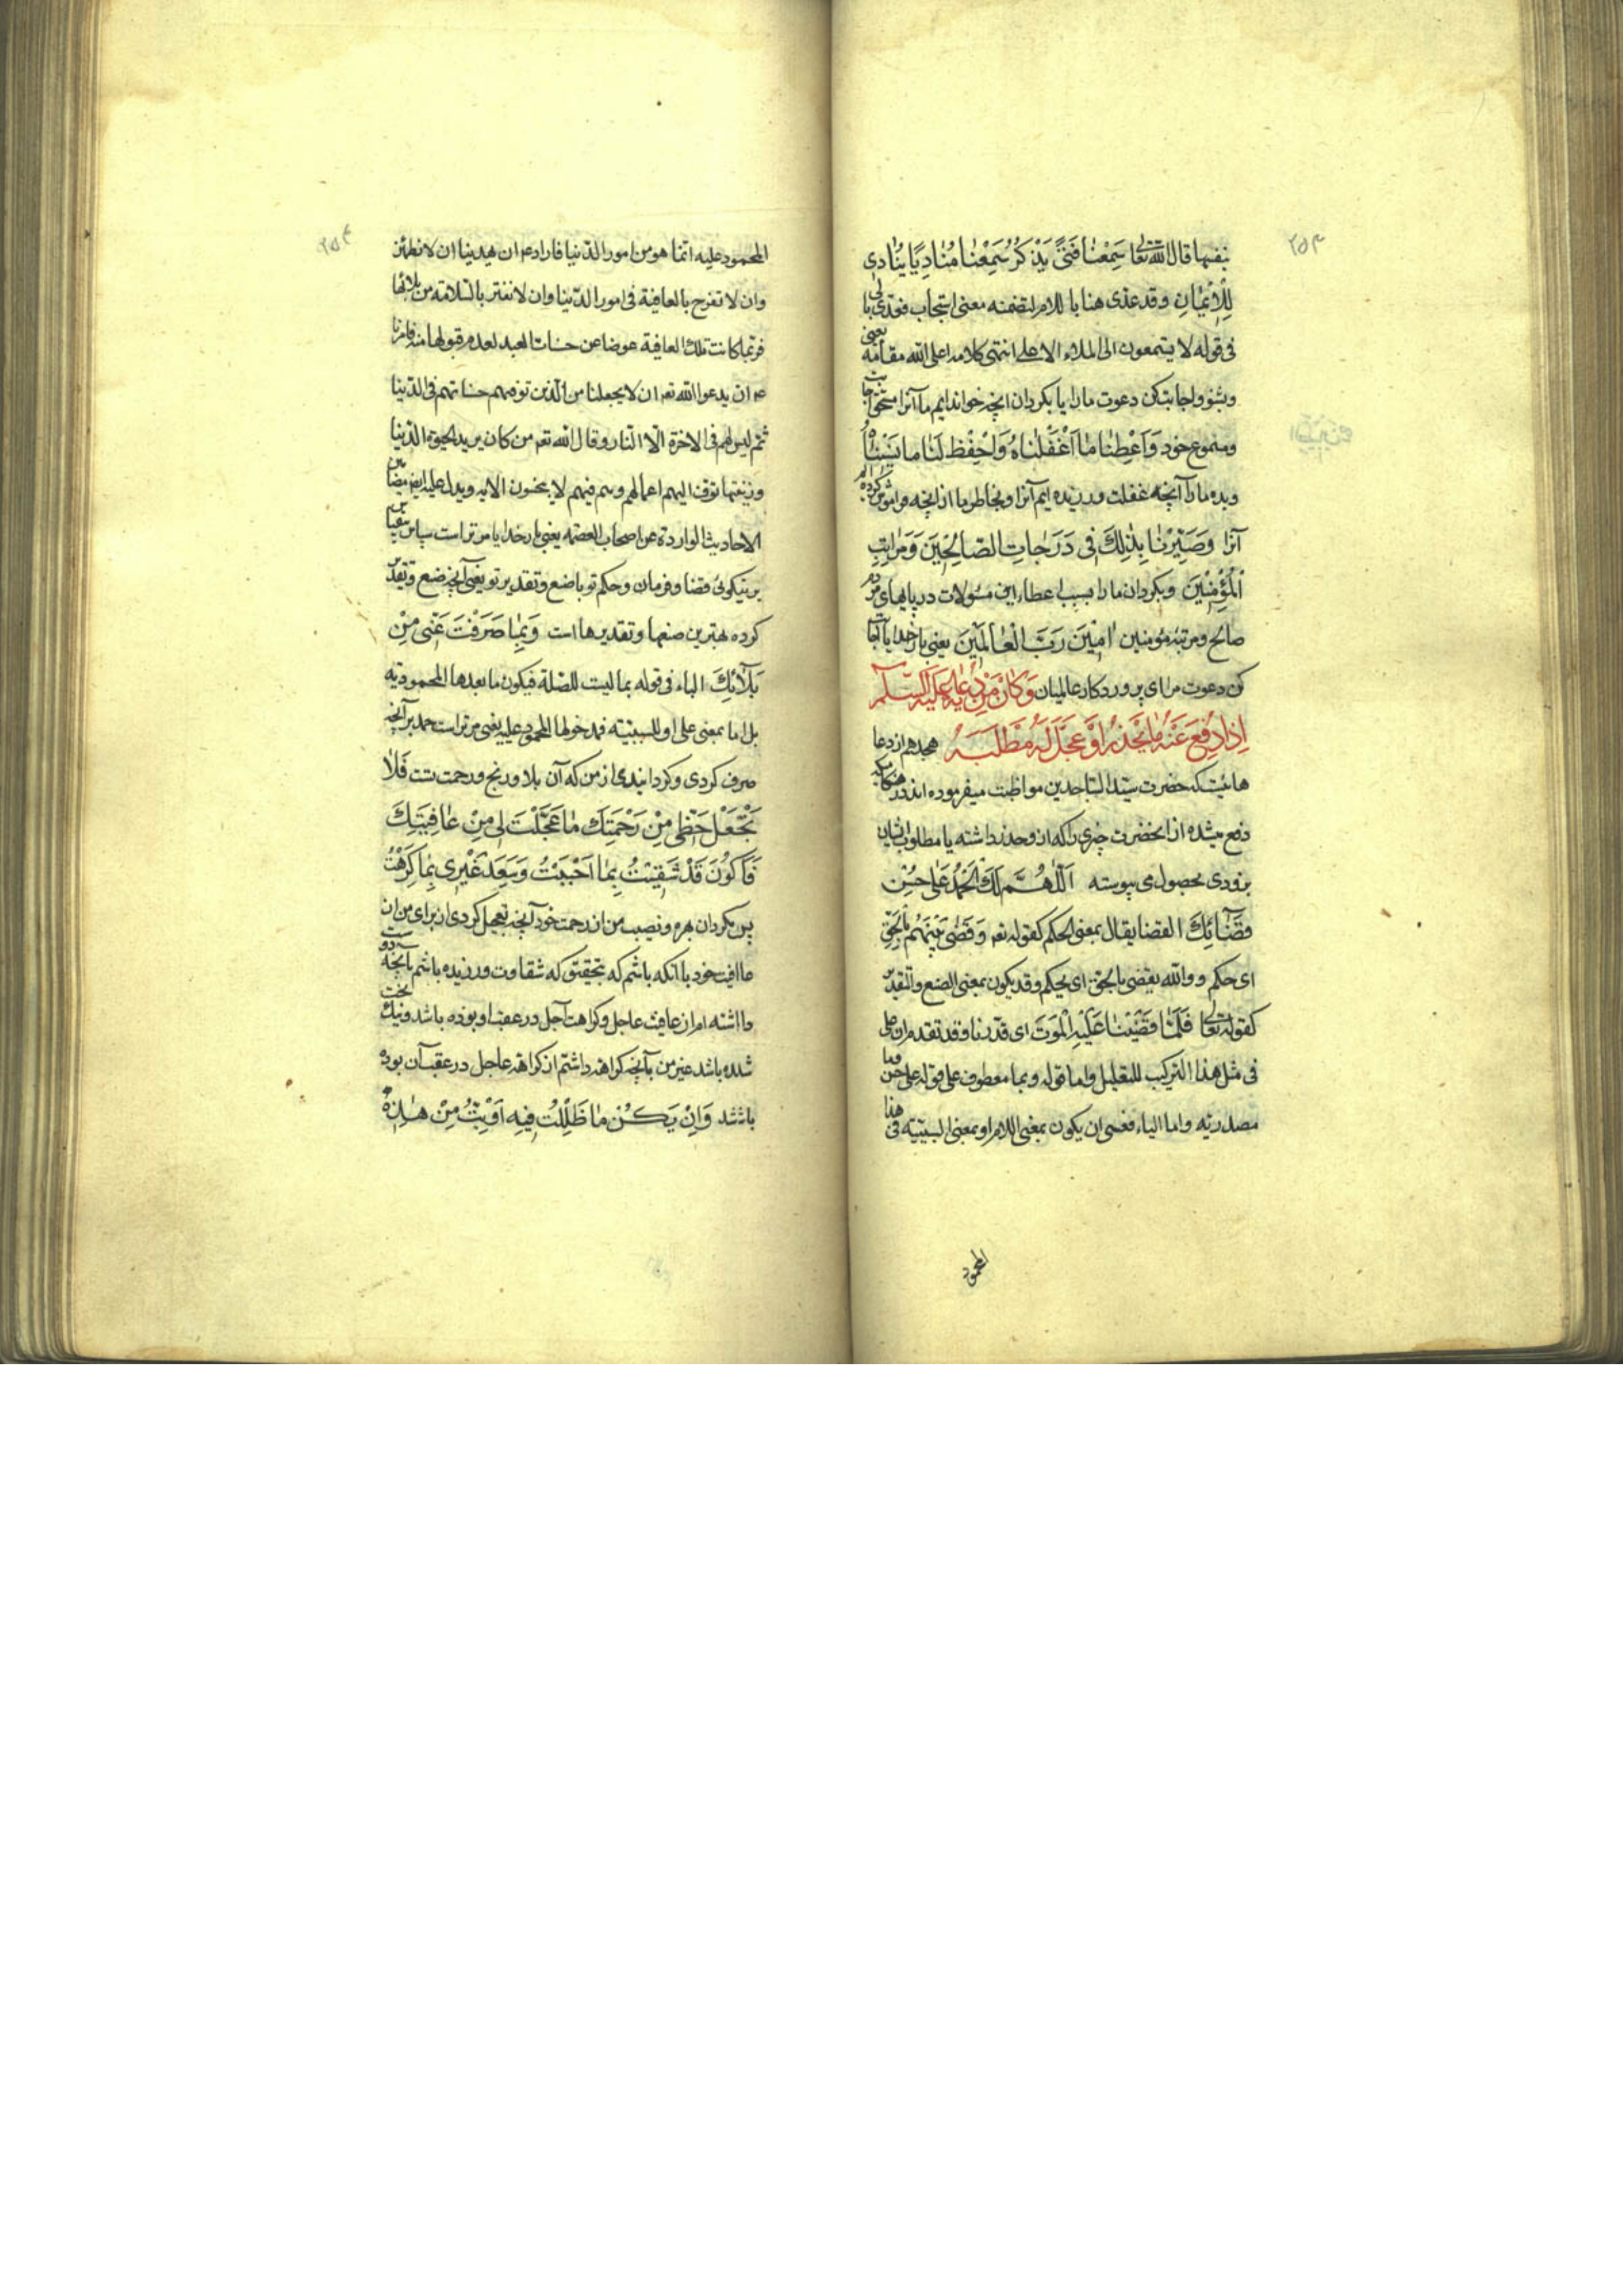 بنفسها قال الله تعالی سَمِعْنٰا فَتیً یَذْکُرُ سَمِعْنٰا مُنٰادِیًا یُنٰادی
لِلْاِیْمٰانِ وقد عدّی هنا باللام لتضمنه معنی استجاب فعدّی با
فی قوله لا یسمعون الی الملاء الاعلی انتهی کلامه اعلی الله مقامه یعنی
وبشنو واجابت کن دعوت ما را یا بکردان انچه خوانده‌ایم ما آنرا مستحق
ومسموع خود وَاَعْطِنٰا مٰا اَغْفَلْنٰاهُ وَاحْفَظْ لَنٰا مٰا نَسینٰاهُ
وبده ما را آنچه غفلت ورزیده ایم آنرا و بخاطر ما از انچه فراموش کرده ایم
آنرا وَصَیِّرْنٰا بِذٰلِكَ فی دَرَجٰاتِ الصّٰالِحینَ وَمَرٰاتِبِ
الْمُؤْمِنینَ وبکردان ما را بسبب اعطاء این مسئولات در پایهای مردم
صالح ومرتبه مؤمنین اٰمینَ رَبَّ الْعٰالَمینَ یعنی بار خدایا
کن دعوت مرا ای پروردکار عالمیان وَکٰانَ مِنْ دُعٰائِهِ عَلَیْهِ السَّلٰم
اِذٰا دُفِعَ عَنْهُ مٰا یَحْذَرُ اَوْ عُجِّلَ لَهُ مَطْلَبَهُ هجدهم از دعا
هائیست که حضرت سید الساجدین مواظبت میفرموده اند در هنکامیکه
دفع میشده از انحضرت چیزی را که از و حذر داشته یا مطلوب ایشان
بزودی بحصول می پیوسته اَللّٰهُمَّ لَكَ الْحَمْدُ عَلیٰ حُسْنِ
قَضٰائِكَ القضا یقال بمعنی الحکم کقوله تعه وَقُضِیَ بَیْنَهُمْ بِالْحَقِّ
ای حکم و والله یقضی بالحق ای یحکم وقد یکون بمعنی الصنع والتقدیر
کقوله تعالی فَلَمّٰا قَضَیْنٰا عَلَیْهِ الْمَوْتَ ای قدّرنا وقد تقدم ان علی
فی مثل هذا الترکیب للتعلیل واما قوله وبما معطوف علی قوله علی حسن وما
مصدریّه واما الباء فعسی ان یکون بمعنی اللام او بمعنی السببیّه فی هذا
المحمود
المحمود علیه انّما هو من امور الدّنیا فاراد ع ان یهدینا ان لا نطمئن
وان لا نفرح بالعافیة فی امور الدّنیا وان لا نغتر بالسّلامة من بلائها
فربّما کانت تلك العافیة عوضا عن حسنات العبد لعدم قبولها منه فامرنا
ع ان یدعوا الله تعه ان لا یجعلنا من الّذین توفیهم حسناتهم فی الدّنیا
ثمّ لیس لهم فی الاخرة الّا النار وقال الله تعه من کان یرید الحیوة الدّنیا
وزینتها نوف الیهم اعمالهم وهم فیها لا یبخسون الایه ویدل علیه ایضا
الاحادیث الواردة عن اصحاب العصمه یعنی بار خدایا مر تراست سپاس
بر نیکوئی قضا وفرمان وحکم تو یا صنع وتقدیر تو یعنی آنچه صنع وتقدیر
کرده بهترین صنعها وتقدیرها است وَبِمٰا صَرَفْتَ عَنّی مِنْ
بَلٰائِكَ الباء فی قوله بما لیست للصّلة فیکون ما بعدها المحمود به
بل اما بمعنی علی او للسببیّه فمدخولها المحمود علیه یعنی مر تراست حمد بر آنچه
صرف کردی وکردانیدی از من که آن بلا ورنج ورحمت تست فَلٰا
تَجْعَلْ حَظّی مِنْ رَحْمَتِكَ مٰا عَجَّلْتَ لی مِنْ عٰافِیَتِكَ
فَاَکُونَ قَدْ شَقیْتُ بِمٰا اَحْبَبْتُ وَسَعِدَ غَیْری بِمٰا کَرِهْتُ
پس مکردان بهره ونصیب من از رحمت خود آنچه تعجیل کردی از برای من از
عافیت خود با آنکه باشم که بتحقیق که شقاوت ورزیده باشم بآنچه دوست
داشته ام از عافیت عاجل وکراهت آجل در عقب او بوده باشد ونیك بخت
شده باشد غیر من بآنچه کراهت داشتم از کراهة عاجل در عقب آن بوده
باشد وَاِنْ یَکُنْ مٰا ظَلِلْتُ فیهِ اَوْبِتُّ مِنْ هٰذِهِ